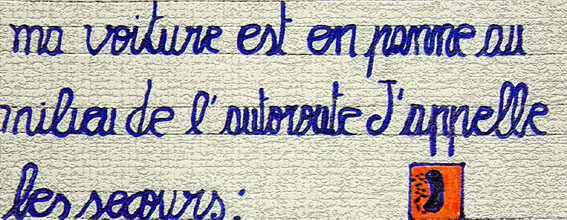 ma voiture est en panne au
milieu de l'autoroute J'appelle
les secours: